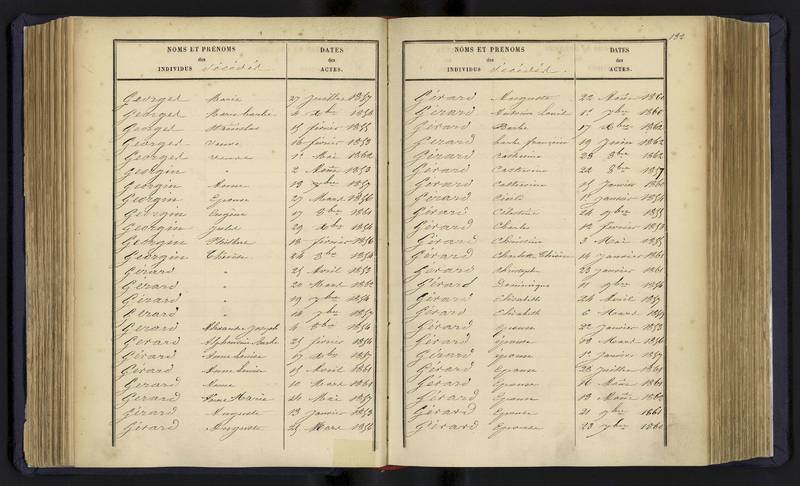 NOMS ET PRÉNOMS des INDIVIDUS décédés
DATES des ACTES.
Georges Marie 27 juillet 1857
Georges Marie barbe 4 Xbre
Georges Stanislas 15 février 1855
Georges Veuve 16 février 1853
Georges Veuve 1er Mai 1862
Georgin " 2 Août 1853
Georgin Anne 13 7bre 1857
Georgin Epouse 27 Mars 1856
Georgin Eugène 17 8bre 1861
Georgin Jules 29 Xbre 1854
Georgin 18 février 1856
Georgin Thérèse 24 8bre 1854
Gérard " 25 Avril 1852
Gérard " 20 Mars
Gérard " 19 7bre 1854
Gérard " 14 7bre 1857
Gérard Alexandre Joseph 4 8bre 1854
Gérard Alphonsine Barbe 25 février 1854
Gérard Anne Louise 17 Xbre 1857
Gérard Anne Louise 15 Avril 1861
Gérard Anne 10 Mars 1861
Gérard Anne Marie 24 Mai 1857
Gérard Auguste 13 janvier 1853
Gérard Auguste 25 Mars 1856
132
NOMS ET PRÉNOMS des INDIVIDUS décédés.
DATES des ACTES.
Gérard Auguste 22 Août 1860
Gérard Antoine Louis 1er 7bre 1860
Gérard Barbe 17 Xbre 1862
Gérard barbe françoise 19 Juin 1862
Gérard Catherine 28 8bre 1862
Gérard Catherine 22 8bre 1857
Gérard Catherine 15 janvier 1860
Gérard 1er janvier 1854
Gérard Célestine 24 9bre 1855
Gérard Charles 12 février
Gérard Christine 3 Mai 1855
Gérard Charlotte 14 janvier 1861
Gérard Christophe 23 janvier 1861
Gérard Dominique 11 9bre 1856
Gérard Elisabeth 24 Avril 1857
Gérard Elisabeth 6 Mars
Gérard Epouse 22 janvier 1853
Gérard épouse Mars 1856
Gérard épouse 1er janvier 1857
Gérard Epouse 23 juillet
Gérard Epouse 16 Août 1861
Gérard Epouse 13 Août 1862
Gérard Epouse 21 9bre 1861
Gérard Epouse 23 7bre 1860